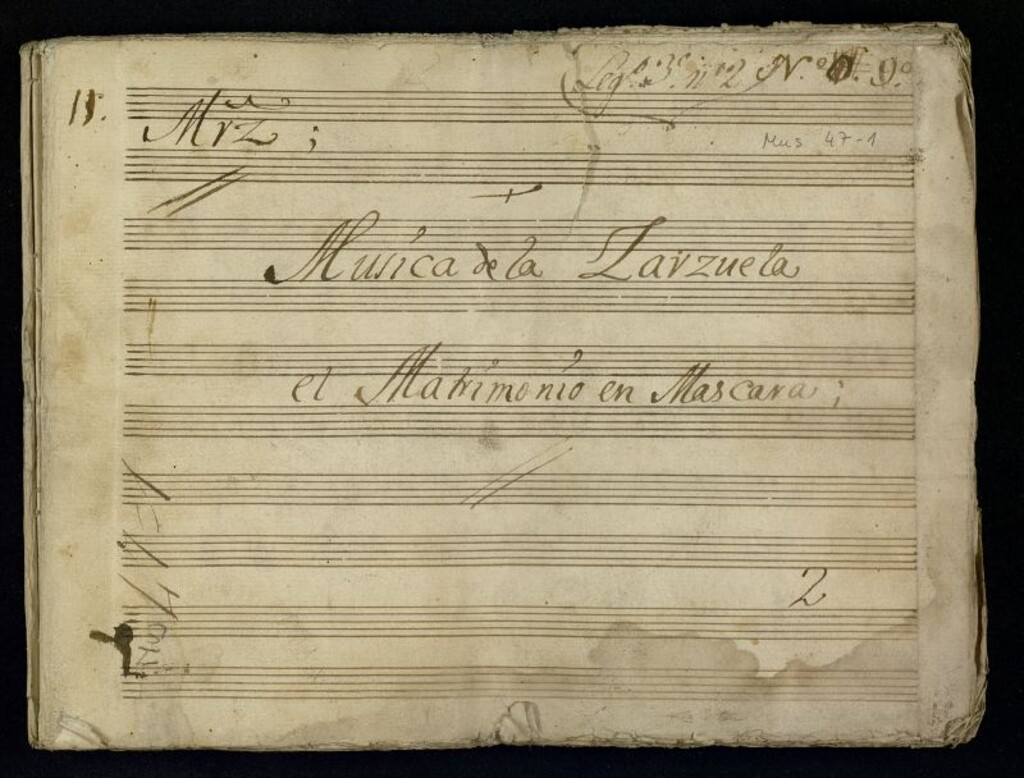 Leg.º 3.º nº 2 N.º 9.º
11.
Mrz;
Mus 47-1
Musica de la Zarzuela
el Matrimonio en Mascara;
2